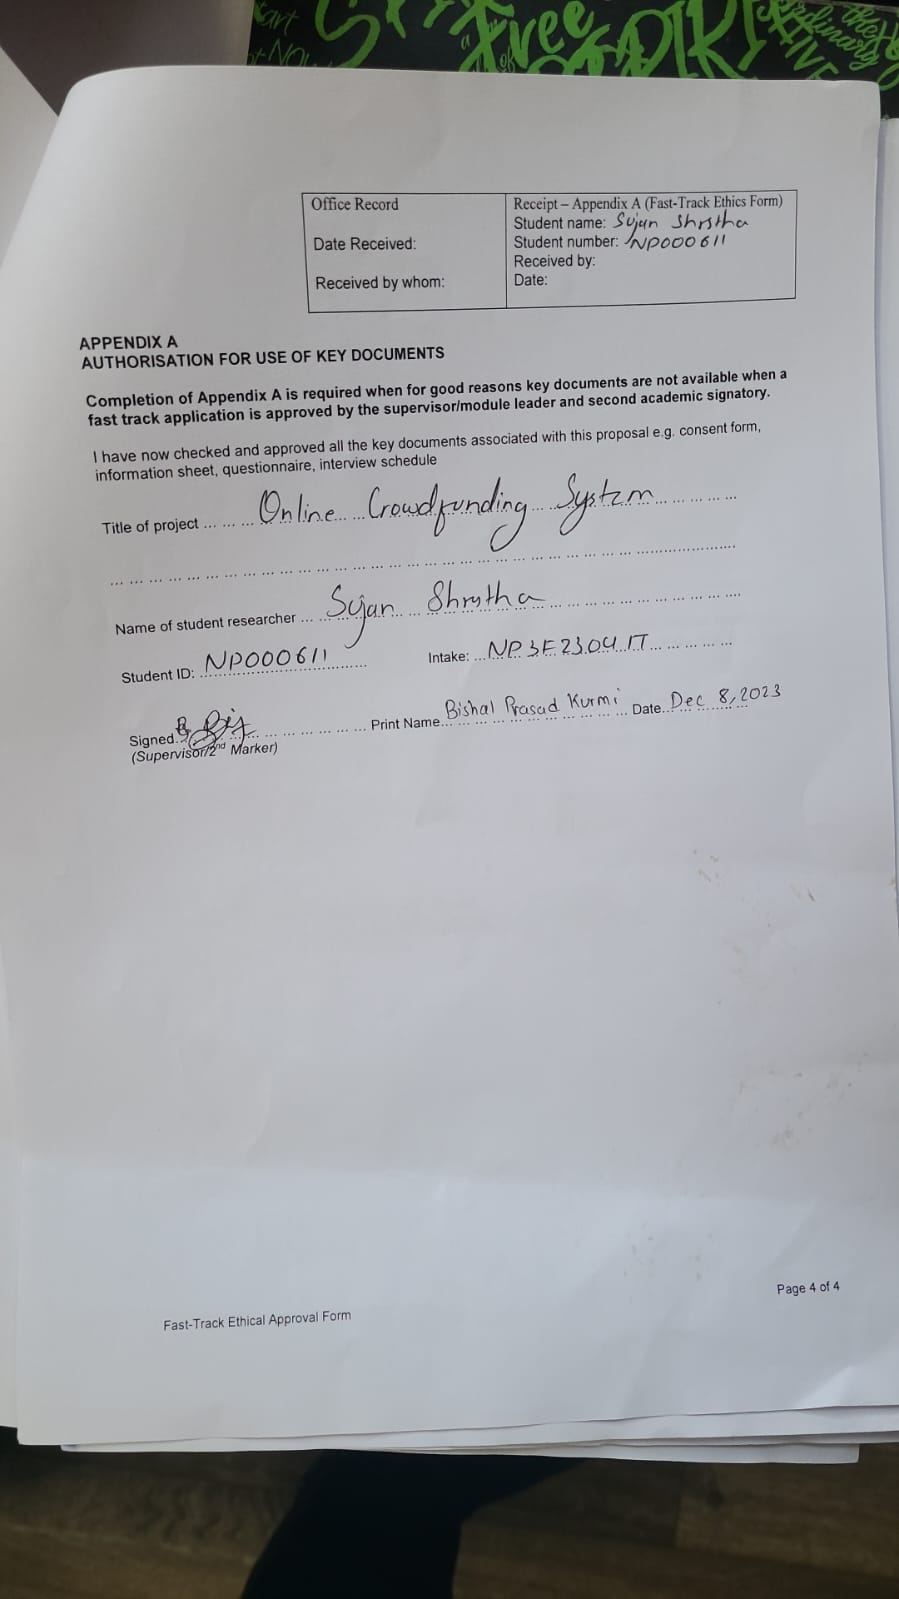 Start
Free
Office Record
Date Received:
Received by whom:
Receipt – Appendix A (Fast-Track Ethics Form)
Student name: Sujan Shrstha
Student number: NP000611
Received by:
Date:
APPENDIX A
AUTHORISATION FOR USE OF KEY DOCUMENTS
Completion of Appendix A is required when for good reasons key documents are not available when a
fast track application is approved by the supervisor/module leader and second academic signatory.
I have now checked and approved all the key documents associated with this proposal e.g. consent form,
information sheet, questionnaire, interview schedule
Title of project ... ... ... Online Crowdfunding System
Name of student researcher ... Sujan Shrstha
Student ID: NP000611 Intake: ... NP3F2304IT
Signed Print Name Bishal Prasad Kurmi Date Dec 8, 2023
(Supervisor/2nd Marker)
Page 4 of 4
Fast-Track Ethical Approval Form